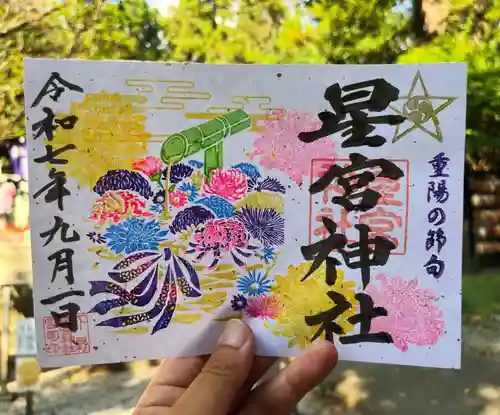 重陽の節句
星宮神社
令和七年九月一日